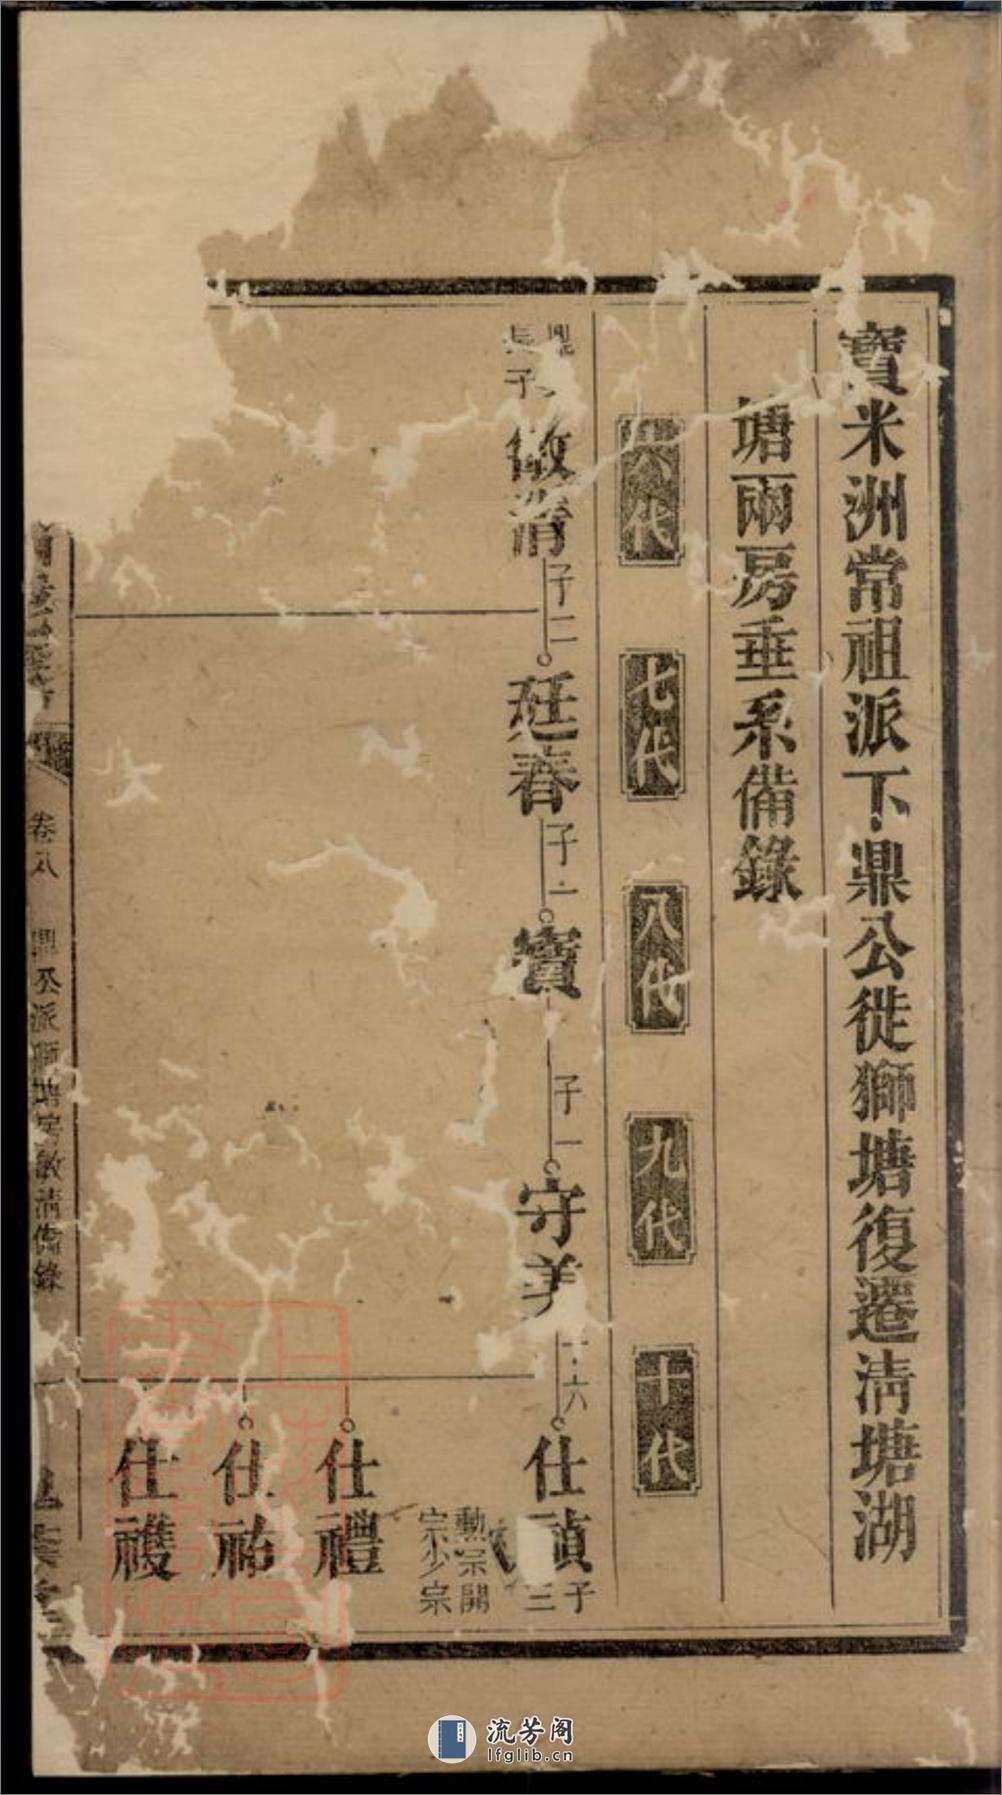 寶米洲常祖派下鼎公徙獅塘復遷淸塘湖
塘兩房垂系備錄
六代 七代 八代 九代 十代
鼎
長子
敏淸 子二 廷春 子一 寶 子一 守美 子六 仕禎 子三
勳宗開
宗少宗
仕禮
仕祐
仕䕶
卷八 鼎公派獅塘房敏淸備錄
流芳阁
lfglib.cn